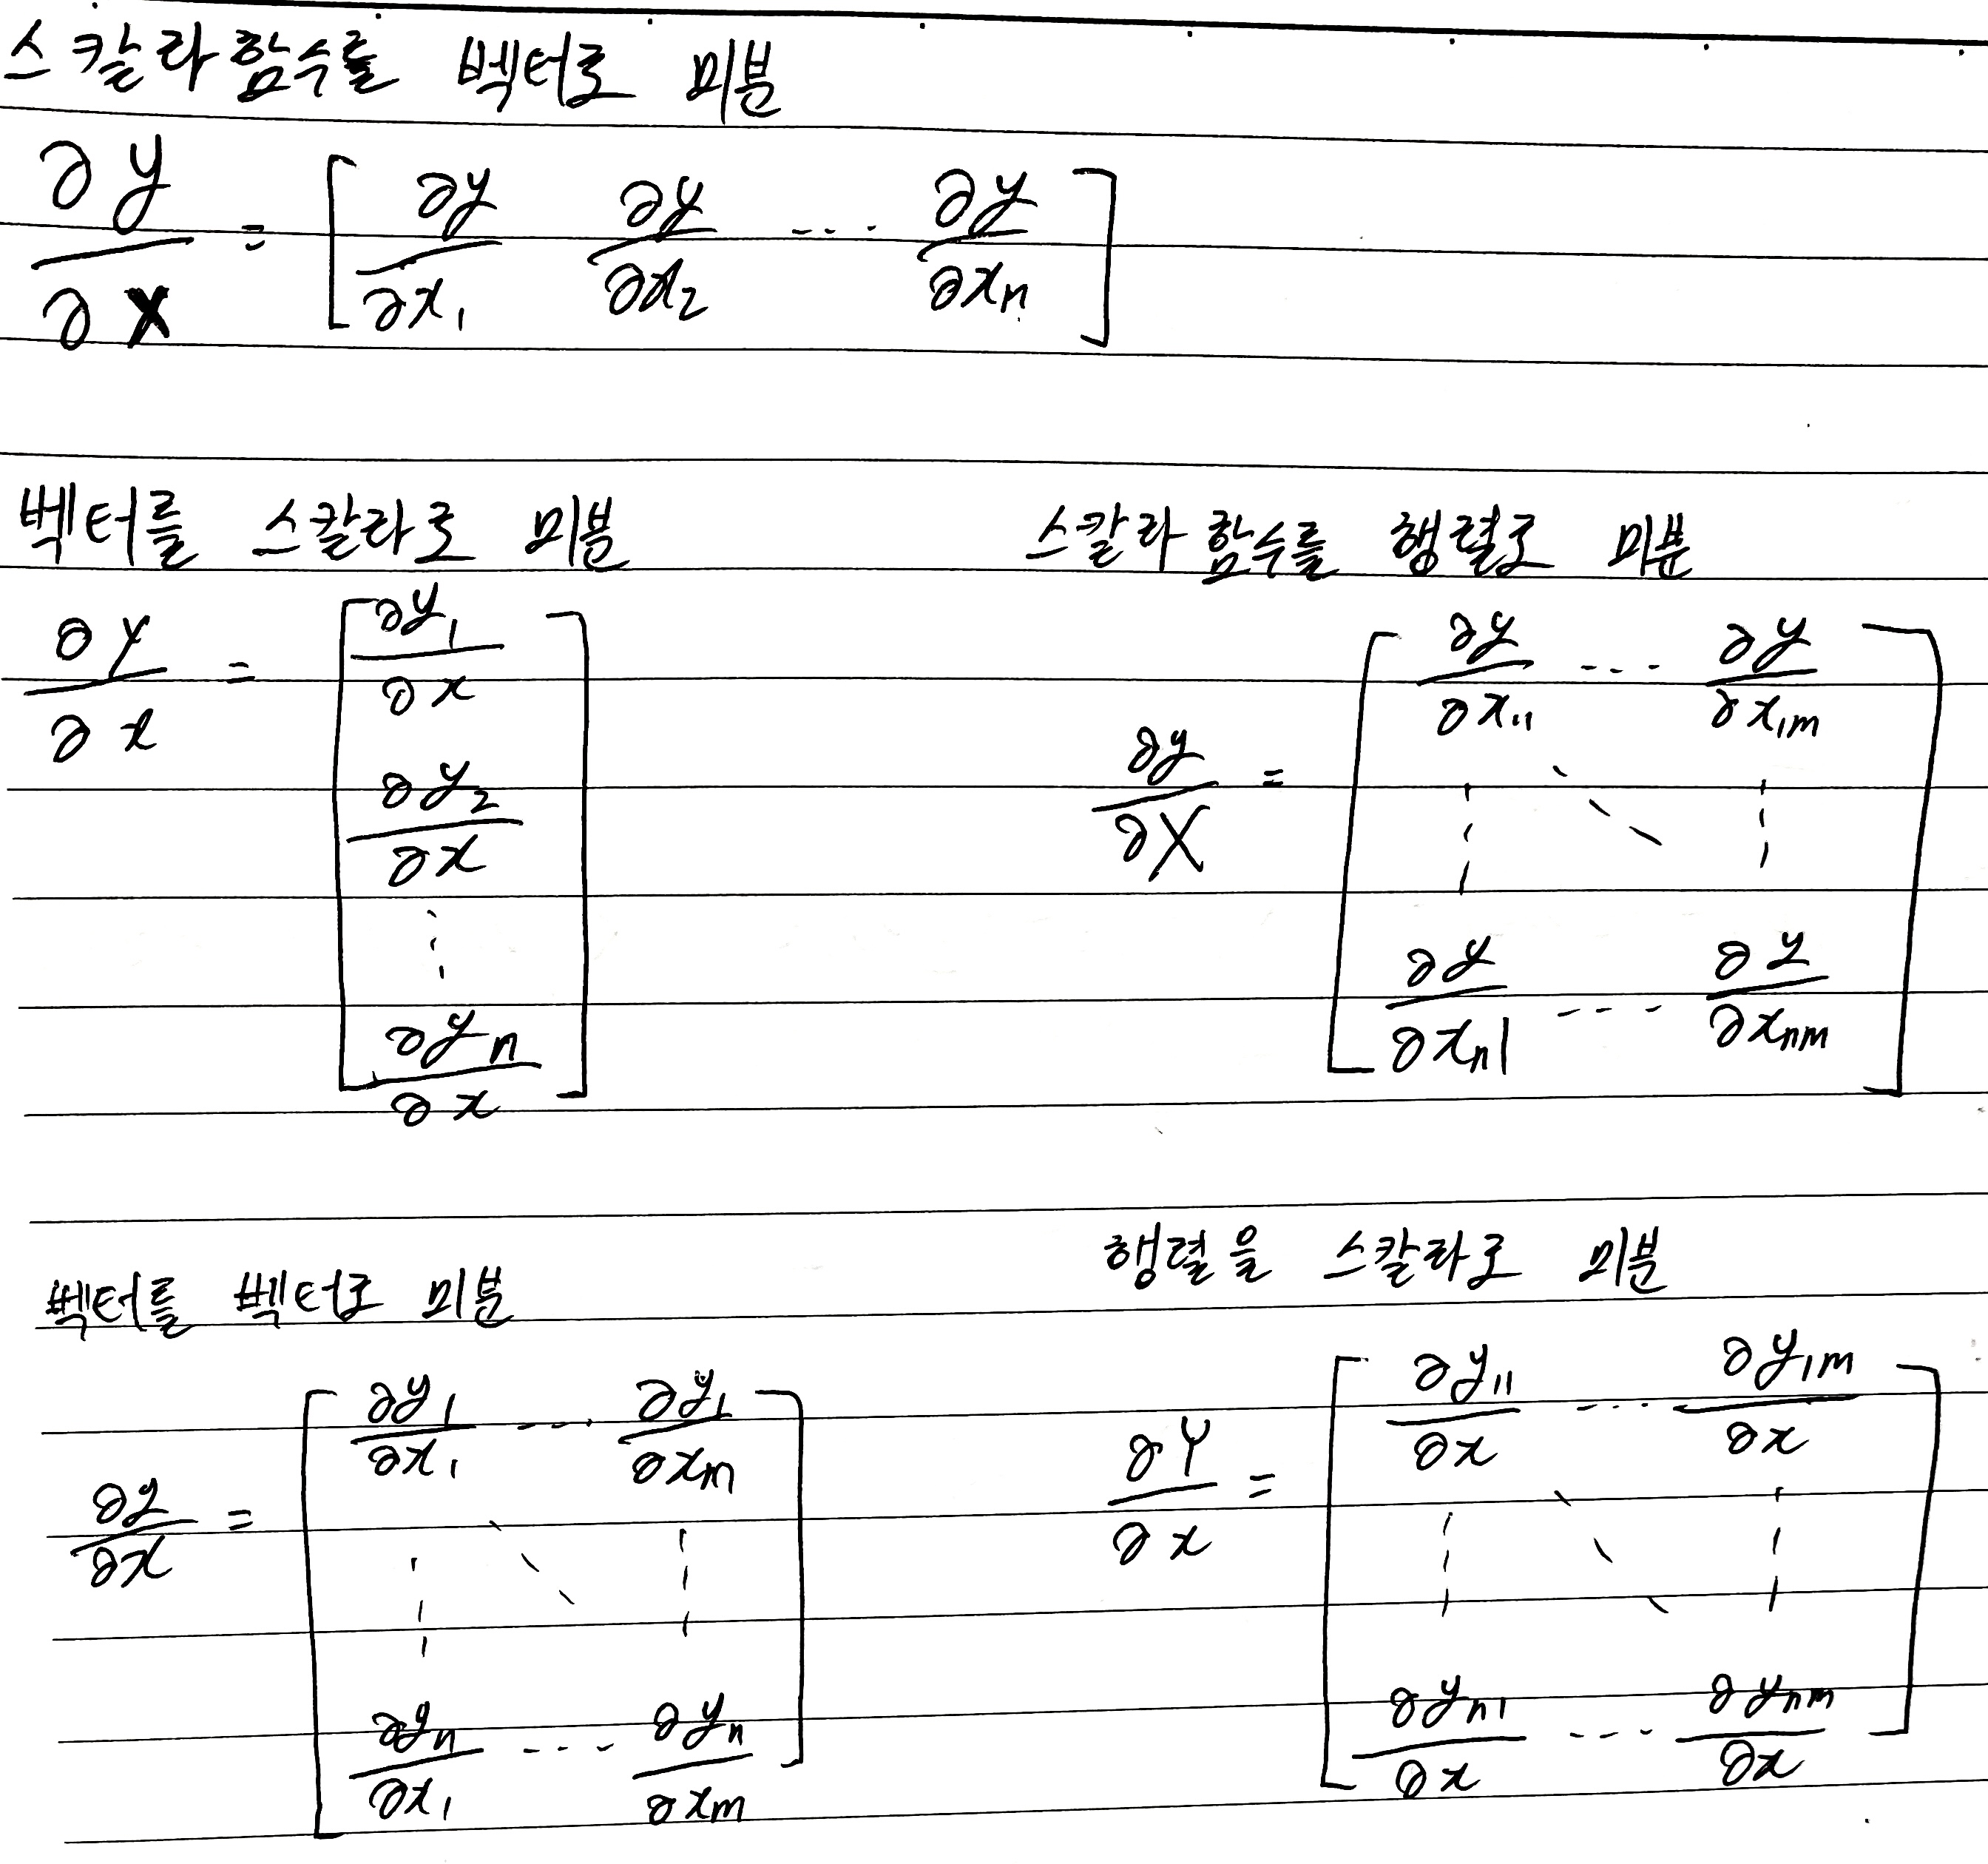 스칼라함수를 벡터로 미분
∂y/∂x = [ ∂y/∂x₁ ∂y/∂x₂ ... ∂y/∂xₙ ]
벡터를 스칼라로 미분
∂y/∂x = [ ∂y₁/∂x
∂y₂/∂x
⋮
∂yₙ/∂x ]
스칼라함수를 행렬로 미분
∂y/∂X = [ ∂y/∂x₁₁ ... ∂y/∂x₁ₘ
⋮ ⋱ ⋮
∂y/∂xₙ₁ ... ∂y/∂xₙₘ ]
벡터를 벡터로 미분
∂y/∂x = [ ∂y₁/∂x₁ ... ∂y₁/∂xₘ
⋮ ⋱ ⋮
∂yₙ/∂x₁ ... ∂yₙ/∂xₘ ]
행렬을 스칼라로 미분
∂Y/∂x = [ ∂y₁₁/∂x ... ∂y₁ₘ/∂x
⋮ ⋱ ⋮
∂yₙ₁/∂x ... ∂yₙₘ/∂x ]